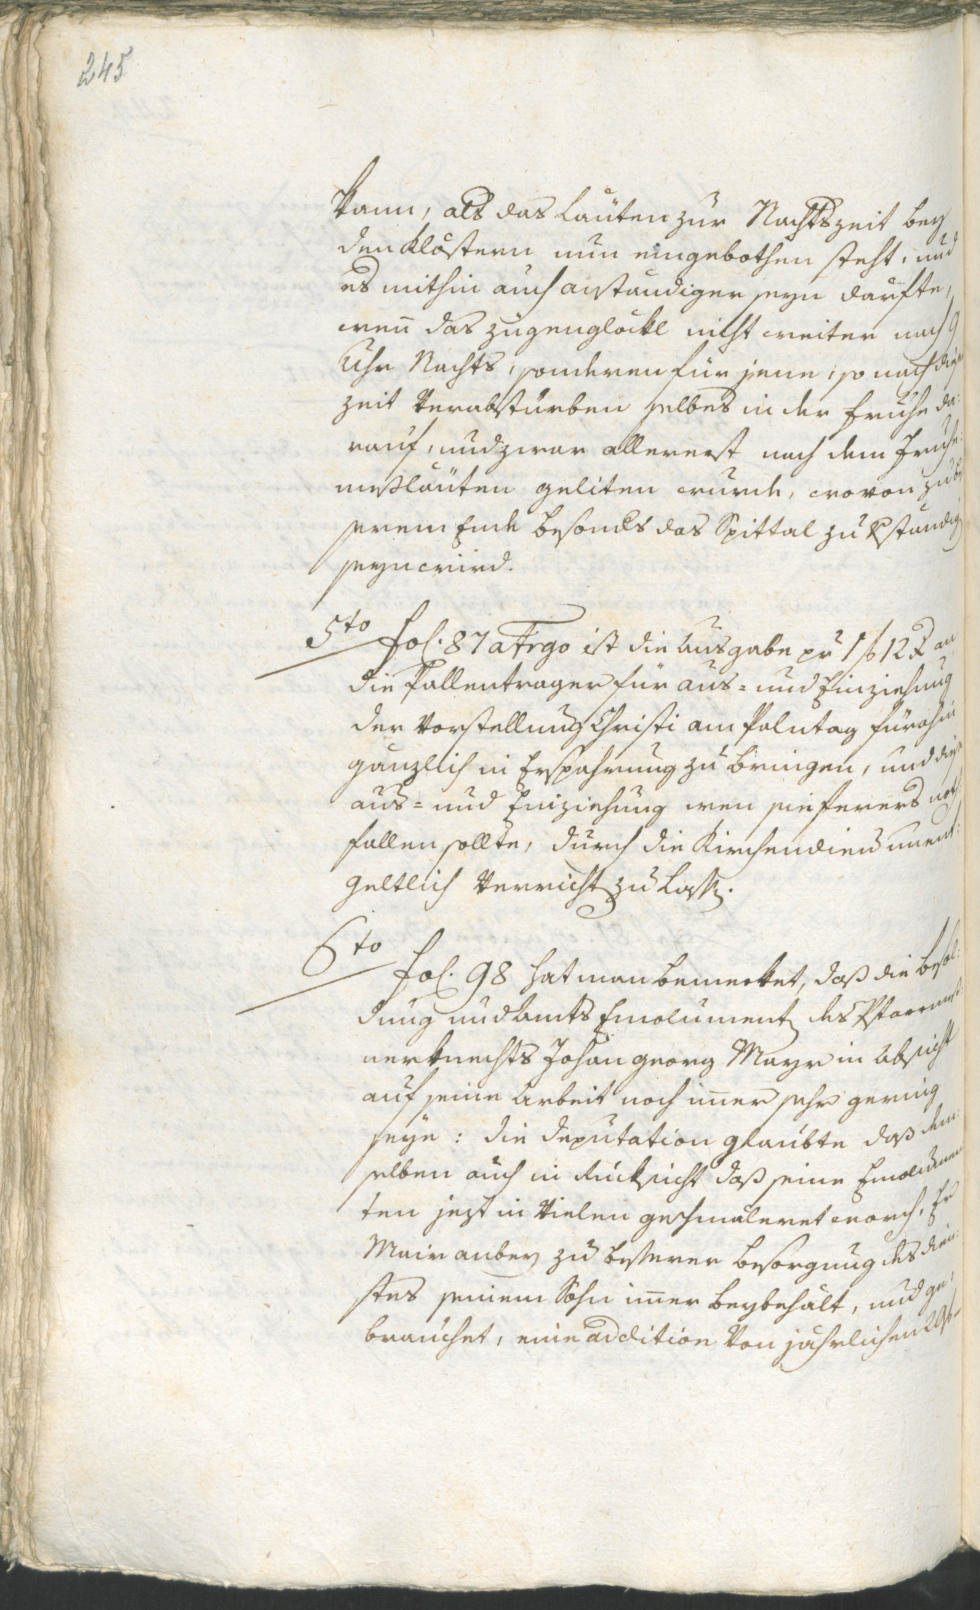 245
kann, als das Lauten zur Nachtszeit bey
den Klöstern nun eingebothen steht, und
es mithin auch anstandiger seyn darfte,
wen̄ das Zügenglöckl nicht weiter nach 9
Uhr Nachts, sonderen für jene, so nach dieser
zeit Verabstürben selbes in der Fruhe da¬
rauf, und zwar allererst nach dem Fruhe¬
meßläuten geliten wurde, wovon zu
serem Ende besonders das Spittal zu Verständig
seyn wird.
5to fol. 87 a Trgo ist die Ausgabe pr 1 f 12 x an
die Pallentrager für aus- und Einziehung
der Vorstellung Christi am Palmtag fürohin
gänzlich in Erspahrung zu bringen, und diese
aus- und Einziehung wen sie ferers noth
fallen sollte, durch die Kirchendiener unent¬
geltlich Verricht zu lassen.
6to fol. 98 hat man bemerket, daß die Besol¬
dung und Amts Emolumenten des Pfarrmess¬
nerknechts Johan Georg Mayr in Absicht
auf seine Arbeit noch im̄er sehr gering
seye: die Deputation glaubte daß dem¬
selben auch in Rucksicht daß seine Emolumen
ten jezt in Vielen geschmäleret worden, Er
Mair anbey zu besserer besorgung des dien¬
stes seinem Sohn im̄er beybehält, und ge¬
brauchet, eine addition Von jährlichen 20 f